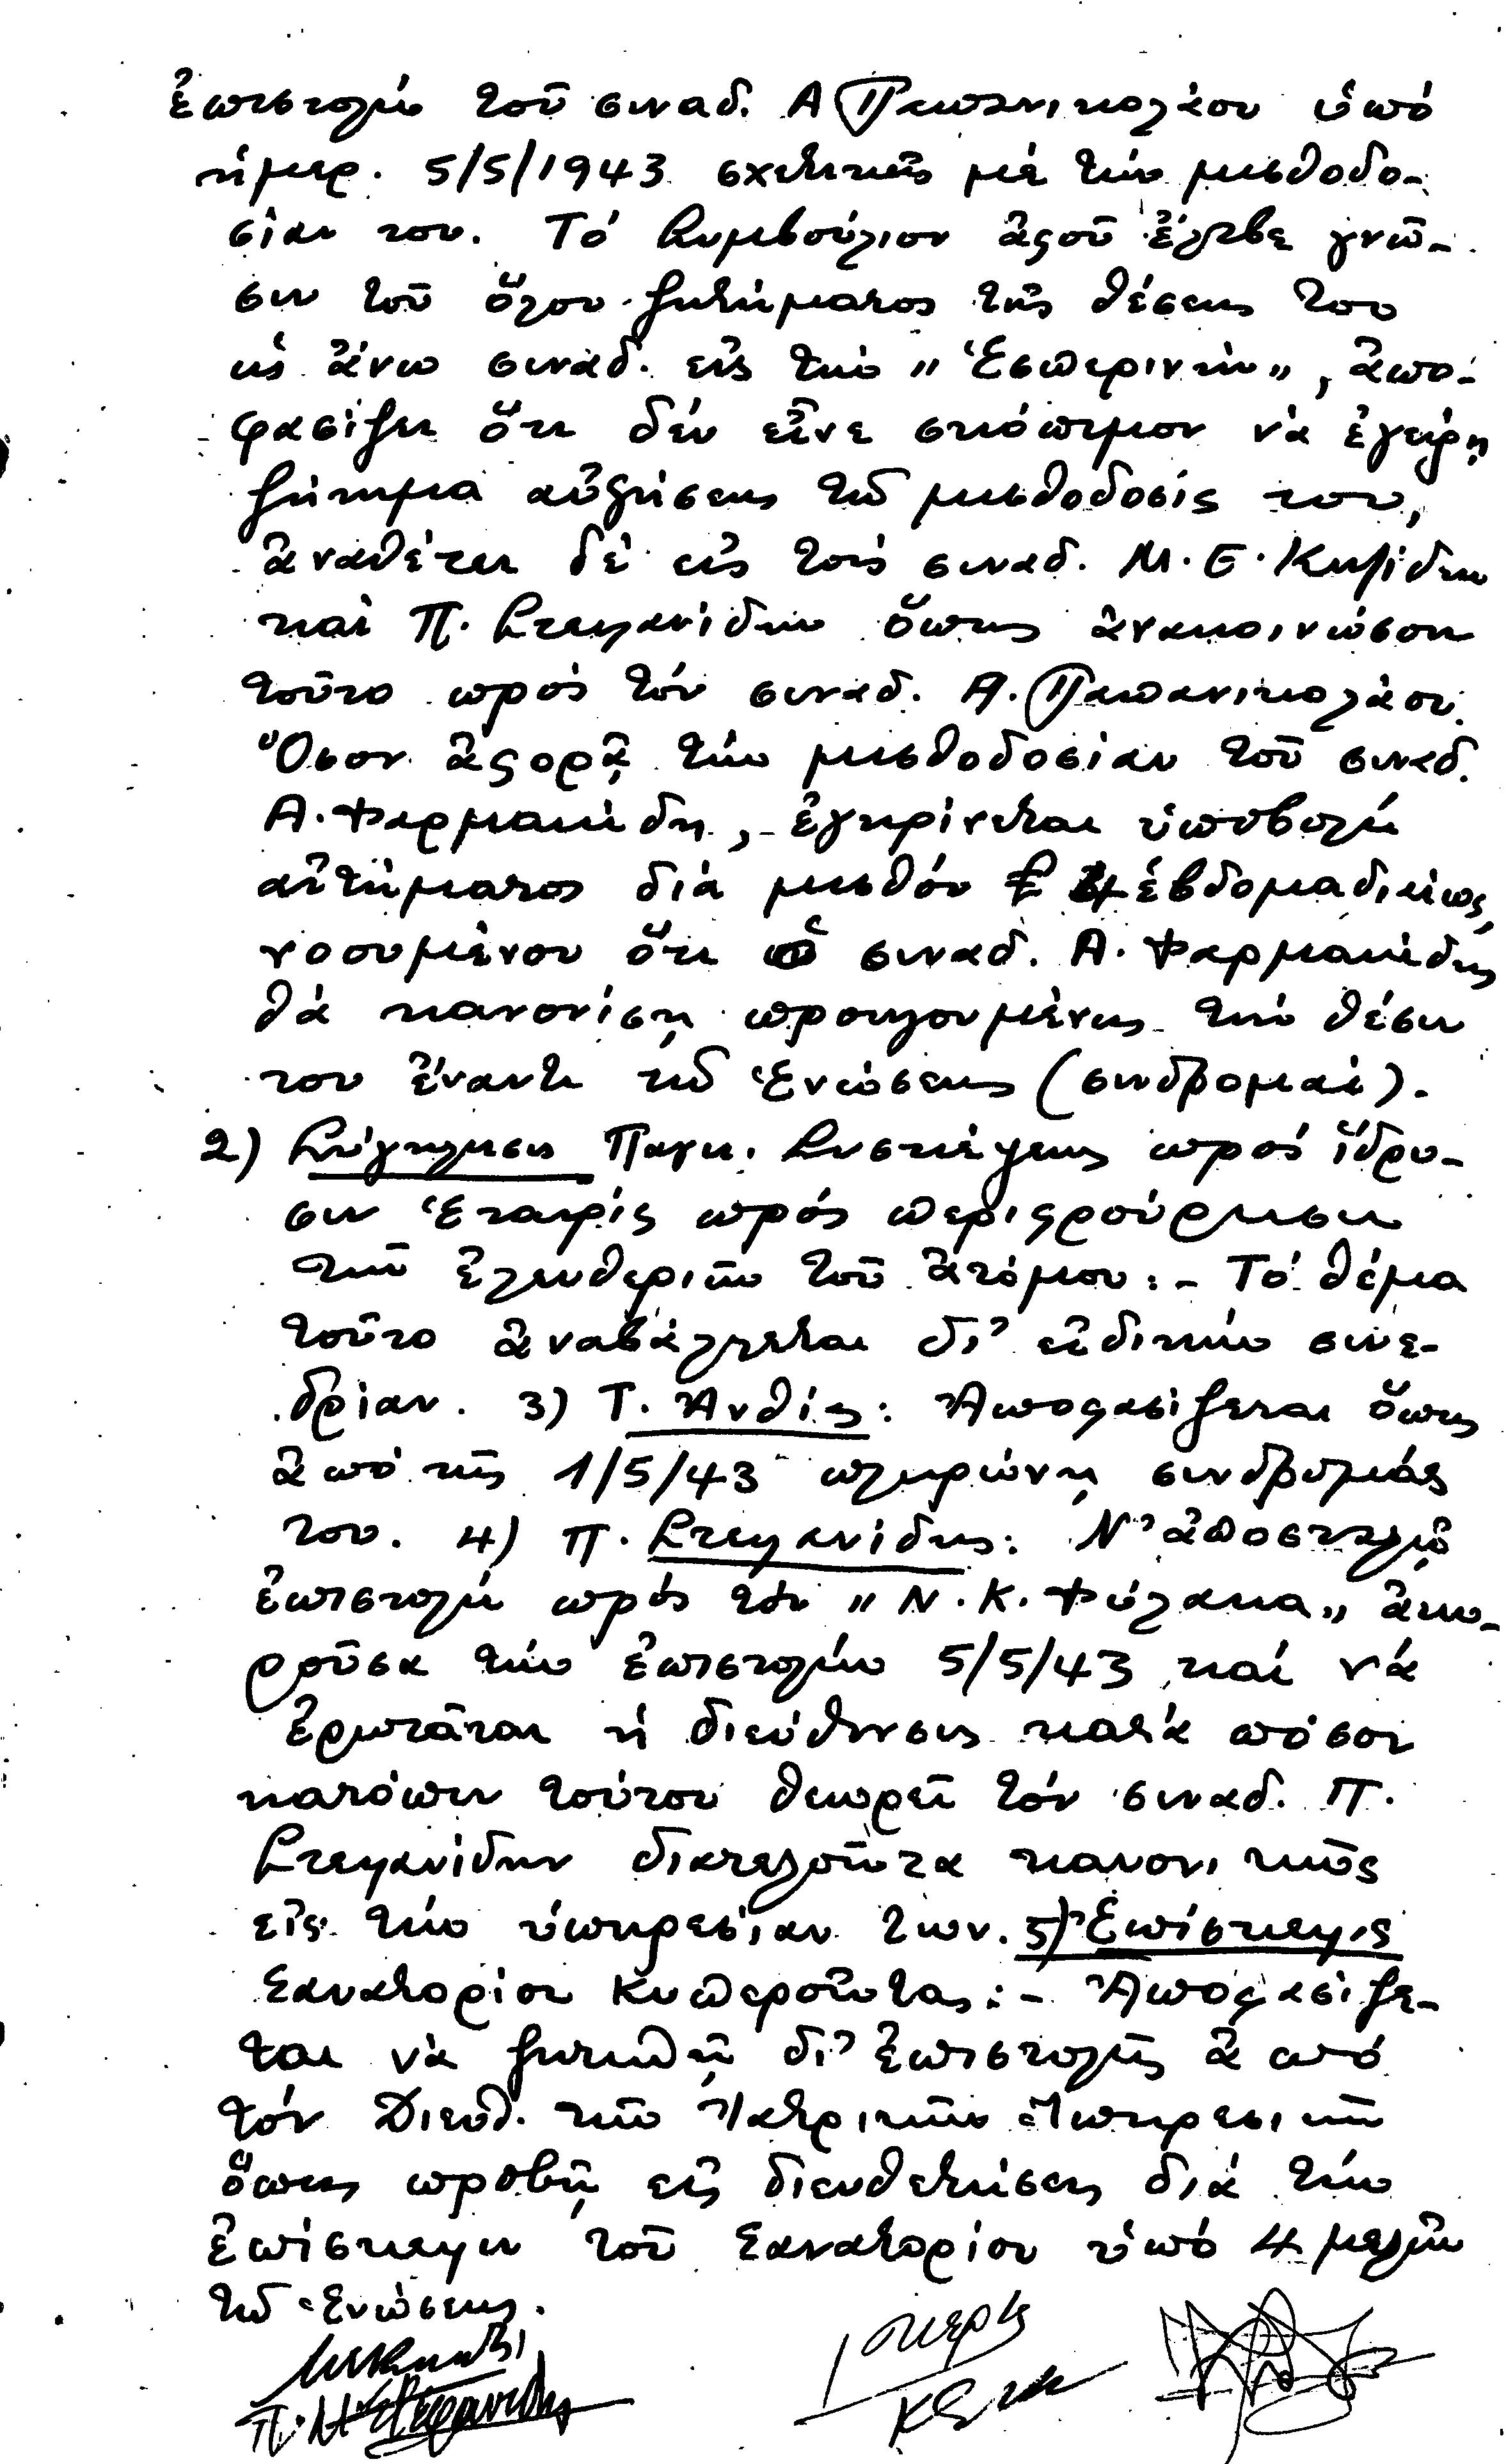 ἐπιστολὴν τοῦ συναδ. Α Παπανικολάου ὑπὸ
ἡμερ. 5/5/1943 σχετικῶς μὲ τὴν μισθοδο-
σίαν του. Τὸ Συμβούλιον ἀφοῦ ἔλαβε γνῶ-
σιν τοῦ ὅλου ζητήματος τῆς θέσεως του
ὡς ἄνω συναδ. εἰς τὴν "Ἑσπερινὴν", ἀπο-
φασίζει ὅτι δὲν εἶνε σκόπιμον νὰ ἐγείρῃ
ζήτημα αὐξήσεως τῆς μισθοδοσίας του,
ἀναθέτει δὲ εἰς τοὺς συναδ. Μ. Ε.
καὶ Π. Στεφανίδην ὅπως ἀνακοινώσουν
τοῦτο πρὸς τὸν συναδ. Α. Παπανικολάου.
Ὅσον ἀφορᾷ τὴν μισθοδοσίαν τοῦ συναδ.
Α. Φαρμακίδη, ἐγκρίνεται ὑποβολὴ
αἰτήματος διὰ μισθὸν £ 4 ἑβδομαδιαίως,
νοουμένου ὅτι ὁ συναδ. Α. Φαρμακίδης
θὰ κανονίσῃ προηγουμένως τὴν θέσιν
του ἔναντι τῆς Ἑνώσεως (συνδρομαί).
2) Σύγκλησις Παγκ. Συσκέψεως πρὸς ἵδρυ-
σιν Ἑταιρίας πρὸς περιφρούρησιν
τῶν ἐλευθεριῶν τοῦ ἀτόμου: - Τὸ θέμα
τοῦτο ἀναβάλλεται δι' εἰδικὴν συνε-
δρίαν. 3) Τ. Ἀνθίας: Ἀποφασίζεται ὅπως
ἀπὸ τῆς 1/5/43 πληρώνῃ συνδρομάς
του. 4) Π. Στεφανίδης: Ν' ἀποσταλῇ
ἐπιστολὴ πρὸς τὸν "Ν. Κ. Φύλακα" ἀπο-
ροῦσα τὴν ἐπιστολὴν 5/5/43 καὶ νὰ
ἐρωτᾶται ἡ διεύθυνσις κατὰ πόσον
κατόπιν τούτου θεωρεῖ τὸν συναδ. Π.
Στεφανίδην διατελοῦντα κανονικῶς
εἰς τὴν ὑπηρεσίαν των. 5) Ἐπίσκεψις
Σανατορίου Κυπερούντας: - Ἀποφασίζε-
ται νὰ ζητηθῇ δι' ἐπιστολῆς ἀπὸ
τὸν Διευθ. τῶν Ἰατρικῶν Ὑπηρεσιῶν
ὅπως προβῇ εἰς διευθετήσεις διὰ τὴν
ἐπίσκεψιν τοῦ Σανατορίου ὑπὸ 4 μελῶν
τῆς Ἑνώσεως.
Π. Στεφανίδης